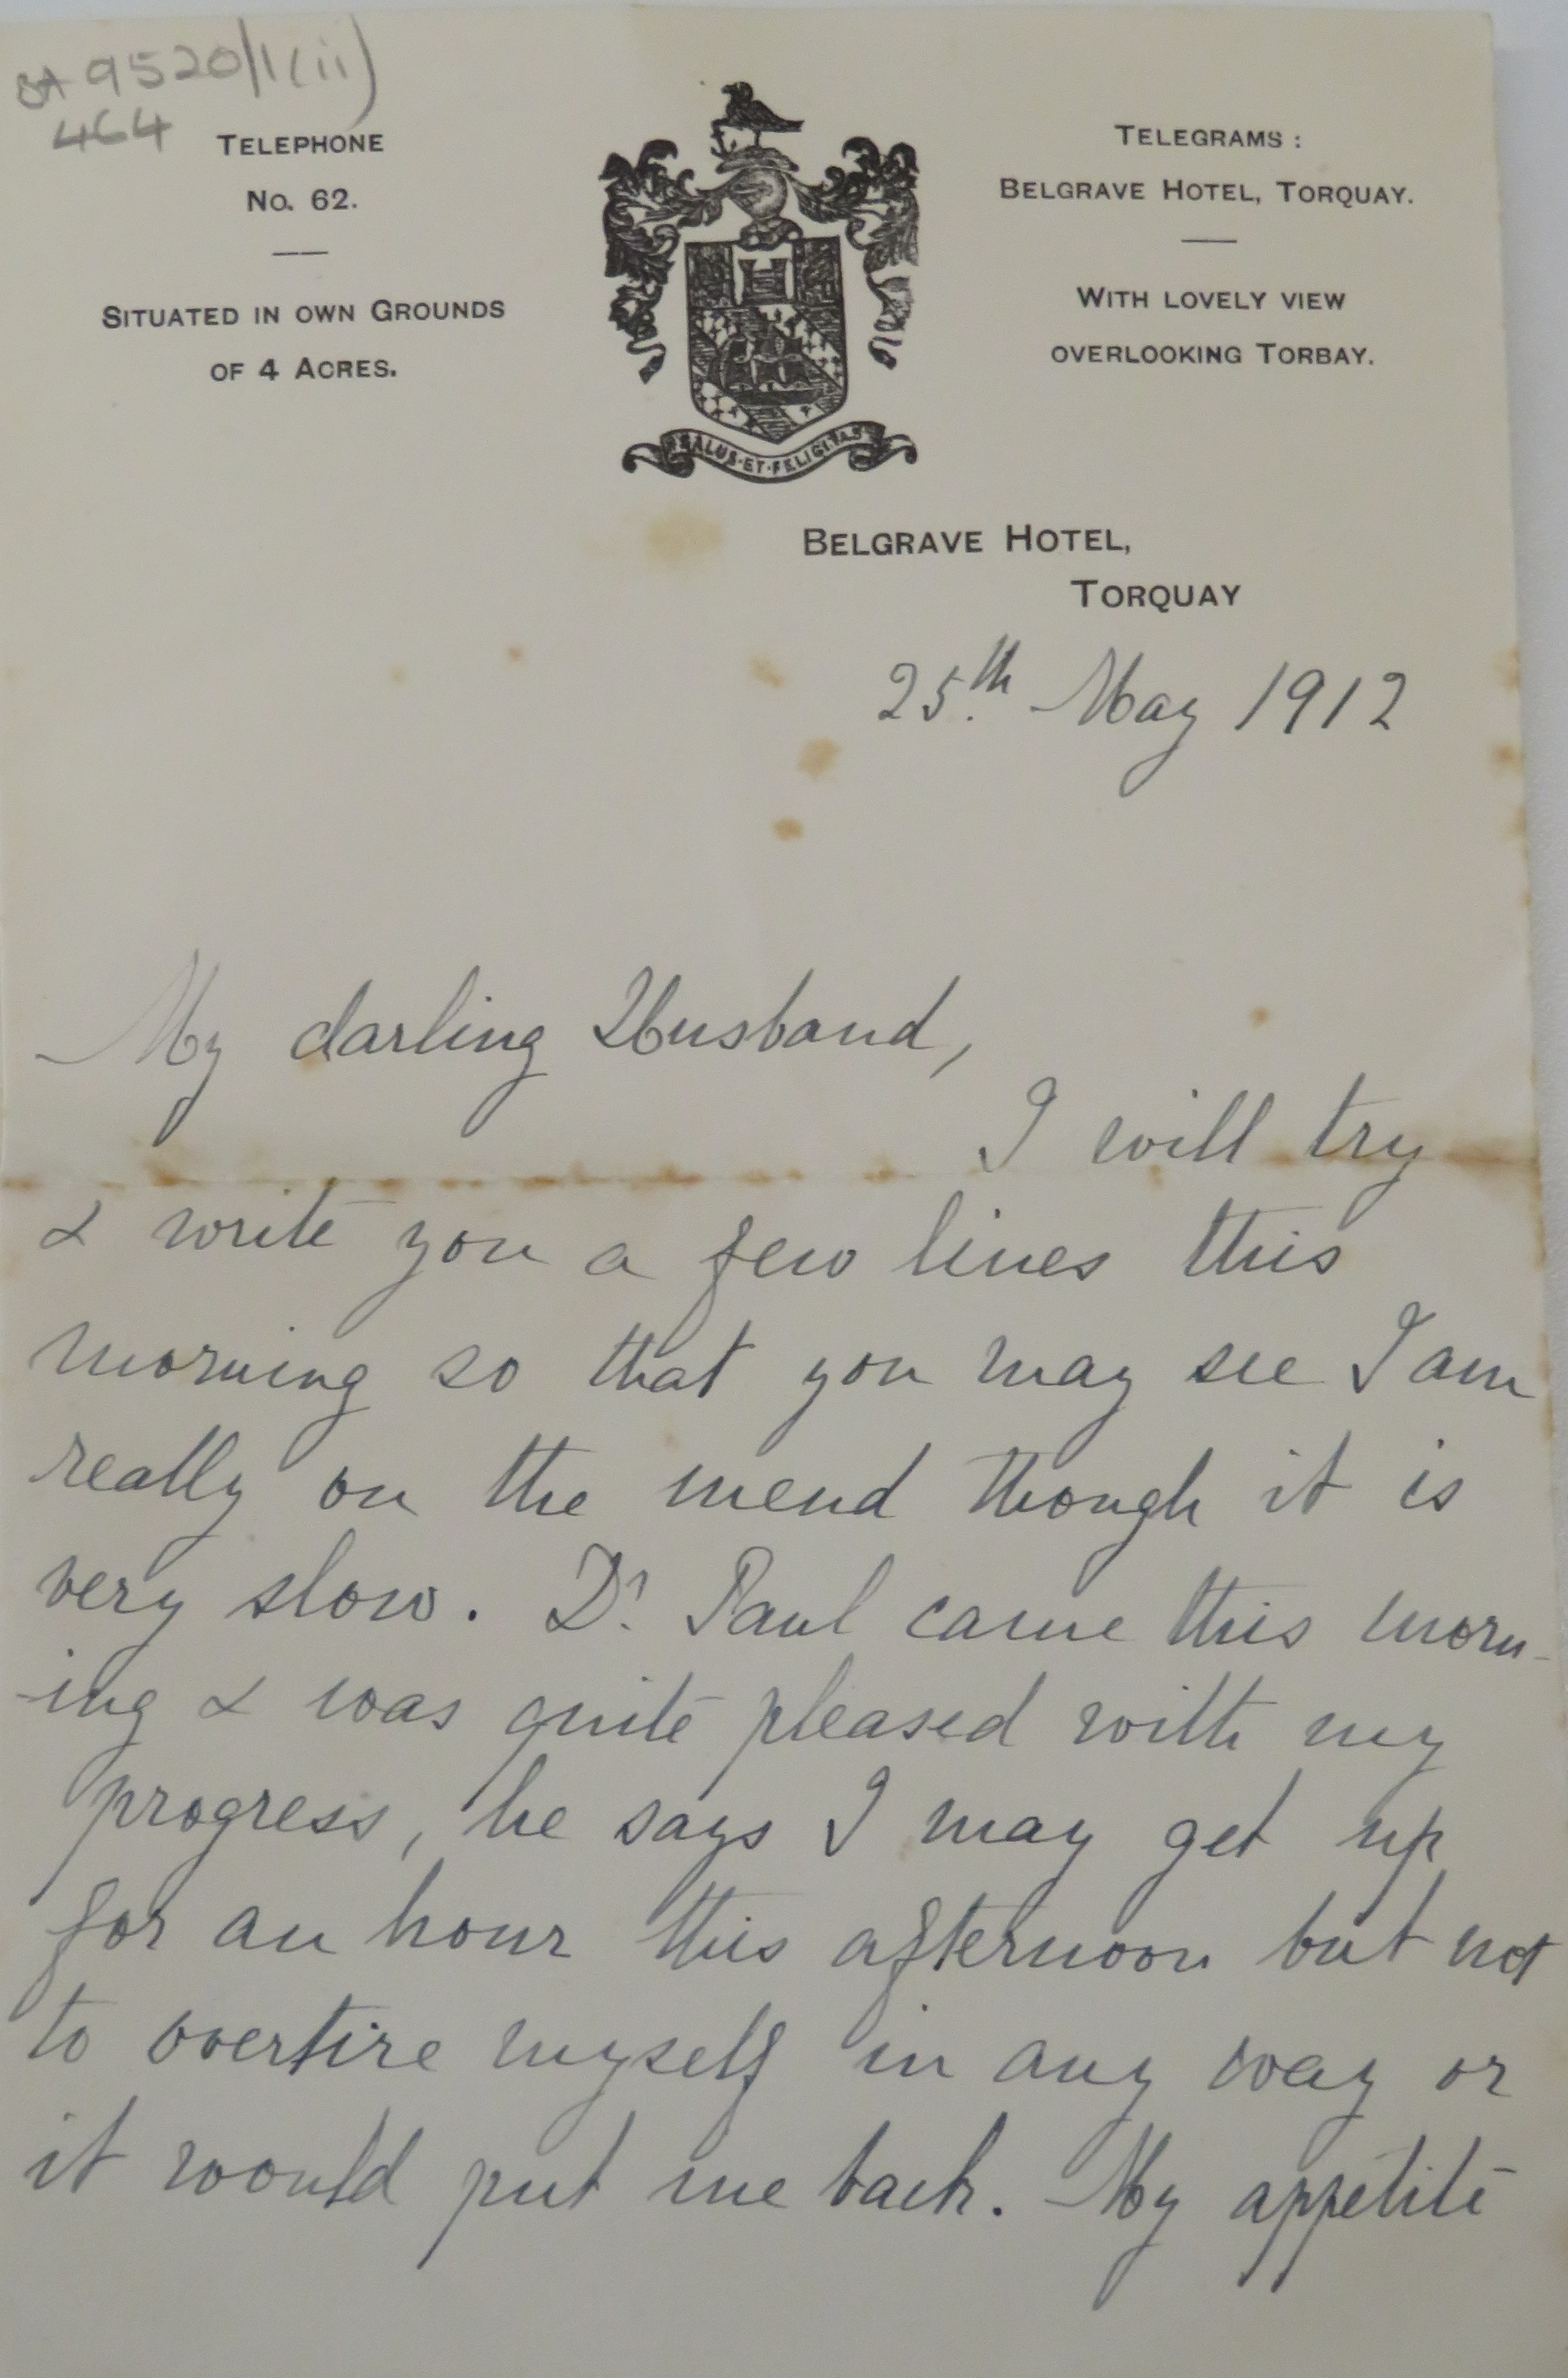 BA 9520/1(ii)
464
TELEPHONE
No. 62.
SITUATED IN OWN GROUNDS
OF 4 ACRES.
SALUS·ET·FELICITAS
TELEGRAMS:
BELGRAVE HOTEL, TORQUAY.
WITH LOVELY VIEW
OVERLOOKING TORBAY.
BELGRAVE HOTEL,
TORQUAY
25th May 1912
My darling Husband,
I will try
& write you a few lines this
morning so that you may see I am
really on the mend though it is
very slow. Dr. Paul came this morn-
-ing & was quite pleased with my
progress, he says I may get up
for an hour this afternoon but not
to overtire myself in any way or
it would put me back. My appetite